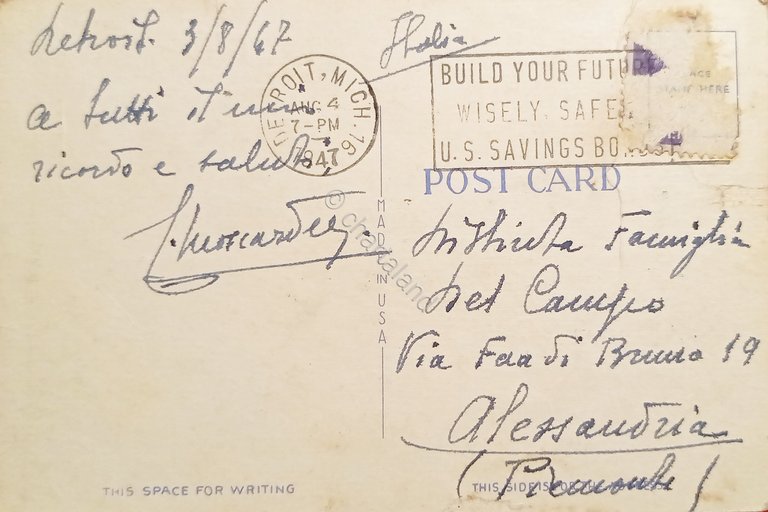 Detroit. 3/8/47
a tutti il mio
ricordo e saluti,
Italia
DETROIT, MICH. 16
AUG 4
7-PM
1947
BUILD YOUR FUTURE
WISELY, SAFE
U.S. SAVINGS BONDS
PLACE
STAMP HERE
POST CARD
MADE IN USA
Distinta Famiglia
Del Campo
Via Faa di Bruno 19
Alessandria
(Piemonte)
THIS SPACE FOR WRITING
THIS SIDE IS FOR THE
© chartaland